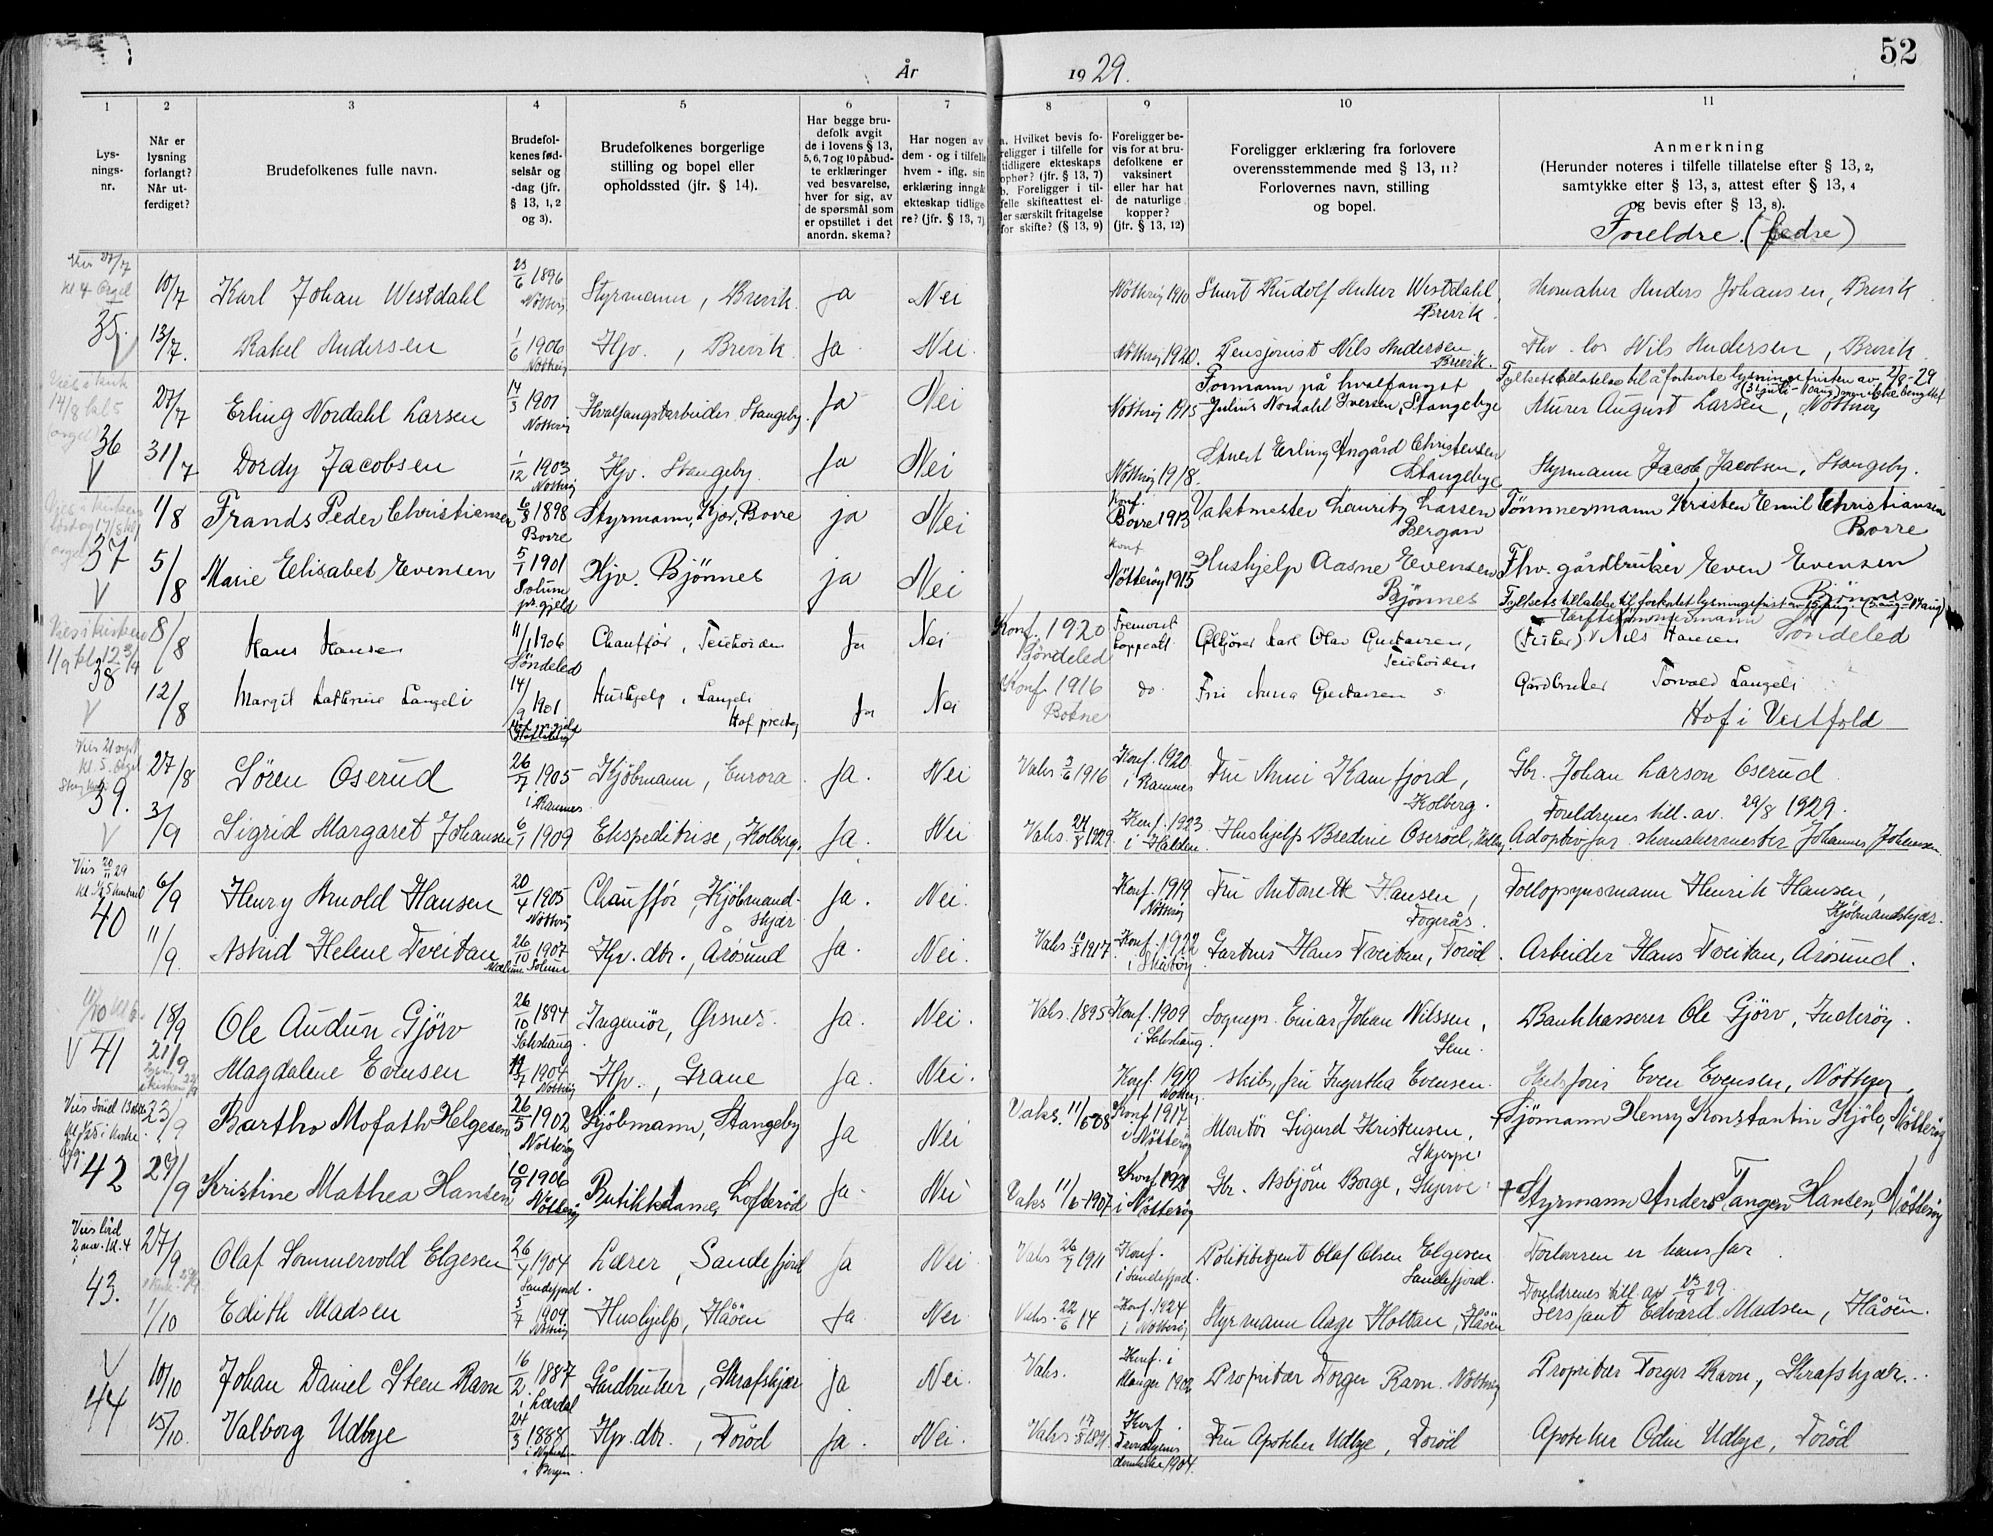 52
År 1929.
1 2 3 4 5 6 7 8 9 10 11
Lys-
nings-
nr.
Når er
lysning
forlangt?
Når ut-
ferdiget?
Brudefolkenes fulle navn.
Brudefol-
kenes fød-
selsår og
-dag (jfr.
§ 13, 1, 2
og 3).
Brudefolkenes borgerlige
stilling og bopel eller
opholdssted (jfr. § 14).
Har begge bru-
defolk avgit
de i lovens § 13,
5, 6, 7 og 10 påbud-
te erklæringer
ved besvarelse,
hver for sig, av
de spørsmål som
er opstillet i det
anordn. skema?
Har nogen av
dem - og i tilfelle
hvem - iflg. sin
erklæring inngå
ekteskap tidlige-
re? (jfr. § 13, 7)
a. Hvilket bevis fo-
religger i tilfelle for
tidligere ekteskaps
ophør? (jfr. § 13, 7)
b. Foreligger i til-
felle skifteattest el-
ler særskilt fritagelse
for skifte? (§ 13, 9)
Foreligger be-
vis for at bru-
defolkene er
vaksinert
eller har hat
de naturlige
kopper?
(jfr. § 13, 12)
Foreligger erklæring fra forlovere
overensstemmende med § 13, 11?
Forlovernes navn, stilling
og bopel.
Anmerkning
(Herunder noteres i tilfelle tillatelse efter § 13, 2,
samtykke efter § 13, 3, attest efter § 13, 4
og bevis efter § 13, 8).
Foreldre (fedre)
35. 10/7 Karl Johan Westdahl 23/6 1896 Nøtterøy Styrmann, Brevik ja Nei Nøtterøy 1910 Rudolf Anker Westdahl, Brevik Skomaker Anders Johansen, Brevik
13/7. Rakel Andersen 1/6 1906 Nøtterøy Hjv., Brevik Ja Nei Nøtterøy 1920. Pensjonist Nils Andersen Brevik. Nils Andersen, Brevik
36 27/7 Erling Nordahl Larsen 14/3 1901 Nøtterøy Hvalfangstarbeider Stangeby. Ja Nei Nøtterøy 1915 Formann på hvalfangst Julius Nordahl Iversen, Stangebye Murer August Larsen, Nøtterøy
31/7 Dordy Jacobsen 1/12 1903 Nøtterøy Hjv. Stangeby. Ja Nei Nøtterøy 1918. Stuert Erling Christensen Stangebye Styrmann Jacob Jacobsen, Stangeby.
37 1/8 Frands Peder Christiansen 6/8 1898 Borre Styrmann, Kjær, Borre ja Nei Konf. Borre 1913 Vaktmester Lauritz Larsen Bergan Tømmermann Kristen Emil Christiansen Borre
5/8 Marie Elisabet Evensen 5/1 1901 Solum pr.gjeld Hjv. Bjønnes ja Nei Konf. Nøtterøy 1915 Hushjelp Aasne Evensen Bjønnes Fhv. gårdbruker Even Evensen Bjønnes
38 8/8 Hans Hansen 11/1 1906 Søndeled Chauffør, Teiehøiden Ja Nei Konf. 1920 Søndeled Fremvist koppeatt. Karl Olav Gustavsen, Teiehøiden (Fisker) Nils Hansen Søndeled
12/8 Margit Kathrine Langeli 14/9 1901 Hushjelp, Langeli Hof prestegj Ja Nei Konf. 1916 Botne do. Fru Anna Gustavsen Gårdbruker Torvald Langeli Hof i Vestfold
39. 27/8 Søren Oserud 26/7 1905 i Ramnes Kjøbmann, Enrora Ja. Nei Vaks 3/6 1916 Konf. 1920 i Ramnes Fru Anni Kamfjord, Kolberg. Gbr. Johan Larson Oserud.
3/9 Sigrid Margaret Johansen 6/1 1909 Ekspeditrise, Kolberg. Ja. Nei Konf. 1923 i Halden Hushjelp Bredine Oserød, Foreldrenes till. av 29/8 1929. Adoptivfar skomakermester Johannes Johansen.
40 6/9 Henry Arnold Hansen 20/4 1905 Nøtterøy Chauffør, Kjøbmand-skjær Ja. Nei. Konf. 1919 i Nøtterøy Fru Antorette Hansen, Fogerås. Henrik Hansen, Kjøbmandskjær.
11/9. Astrid Helene Tveitan 26/10 1907 Hjv. dtr., Årøsund Ja. Nei. Vaks 1917 Konf. 1922 Gartner Hans Tveitan, Torød. Arbeider Hans Tveitan, Årøsund.
V 41 18/9 Ole Audun Gjørv 26/10 1894 Sakshaug Ingeniør, Ørsnes. Ja. Nei. Vaks. 1895 Konf. 1909 i Sakshaug Sognepr. Einar Johan Nilssen, Sem. Bankkasserer Ole Gjørv, Inderøy.
21/9 Magdalene Evensen 1904 Nøtterøy Hjv., Grane Ja. Nei. Konf. 1919 Nøtterøy Skibs.fru Ingertha Evensen. Even Evensen, Nøtterøy.
42 23/9 Bartho Mofath Helgesen 26/5 1902 Nøtterøy Kjøbmann, Stangeby Ja Nei Vaks. 11/6-08 Konf. 1917 i Nøtterøy Montør Sigurd Kristensen, Skjerve. + Sjømann Henry Konstantin Kjøle, Nøtterøy
29/9 Kristine Mathea Hansen 1906 Nøtterøy Butikkdame, Lofterød Ja. Nei Vaks 11/6-1907 Konf. i Nøtterøy Gbr. Asbjørn Borge, Skjerve + Styrmann Anders Tangen Hansen, Nøtterøy
43. 27/9 Olaf Sommervold Elgesen 26/7 1904 Sandefjord. Lærer, Sandefjord Ja Nei Vaks 26/9 1911 Konf. i Sandefjord. Politibetjent Olaf Olsen Elgesen Sandefjord. Forloveren er hans far.
1/10 Edith Madsen 5/7 1909. Nøtterøy Hushjelp, Håøen Ja. Nei Vaks. 22/6 14 Konf. 1924 i Nøtterøy Styrmann Aage Holtan, Håøen Foreldrenes till. av 29. Sersjant Edvard Madsen, Håøen.
V 44 10/10 Johan Daniel Steen Ravn 16/2 1887 i Lærdal Gårdbruker, Skrafskjær Ja Nei. Vaks. Konf. i Manger Proprietær Torger Ravn. Nøtterøy Proprietær Torger Ravn, Skrafskjær.
15/10. Valborg Udbye 24/3 1888 i Bergen Hjv. dtr., Torød Ja. Nei. Vaks Konf. Trondhjems domkirke 1904. Fru Apoteker Udbye, Torød Apoteker Odin Udbye, Torød